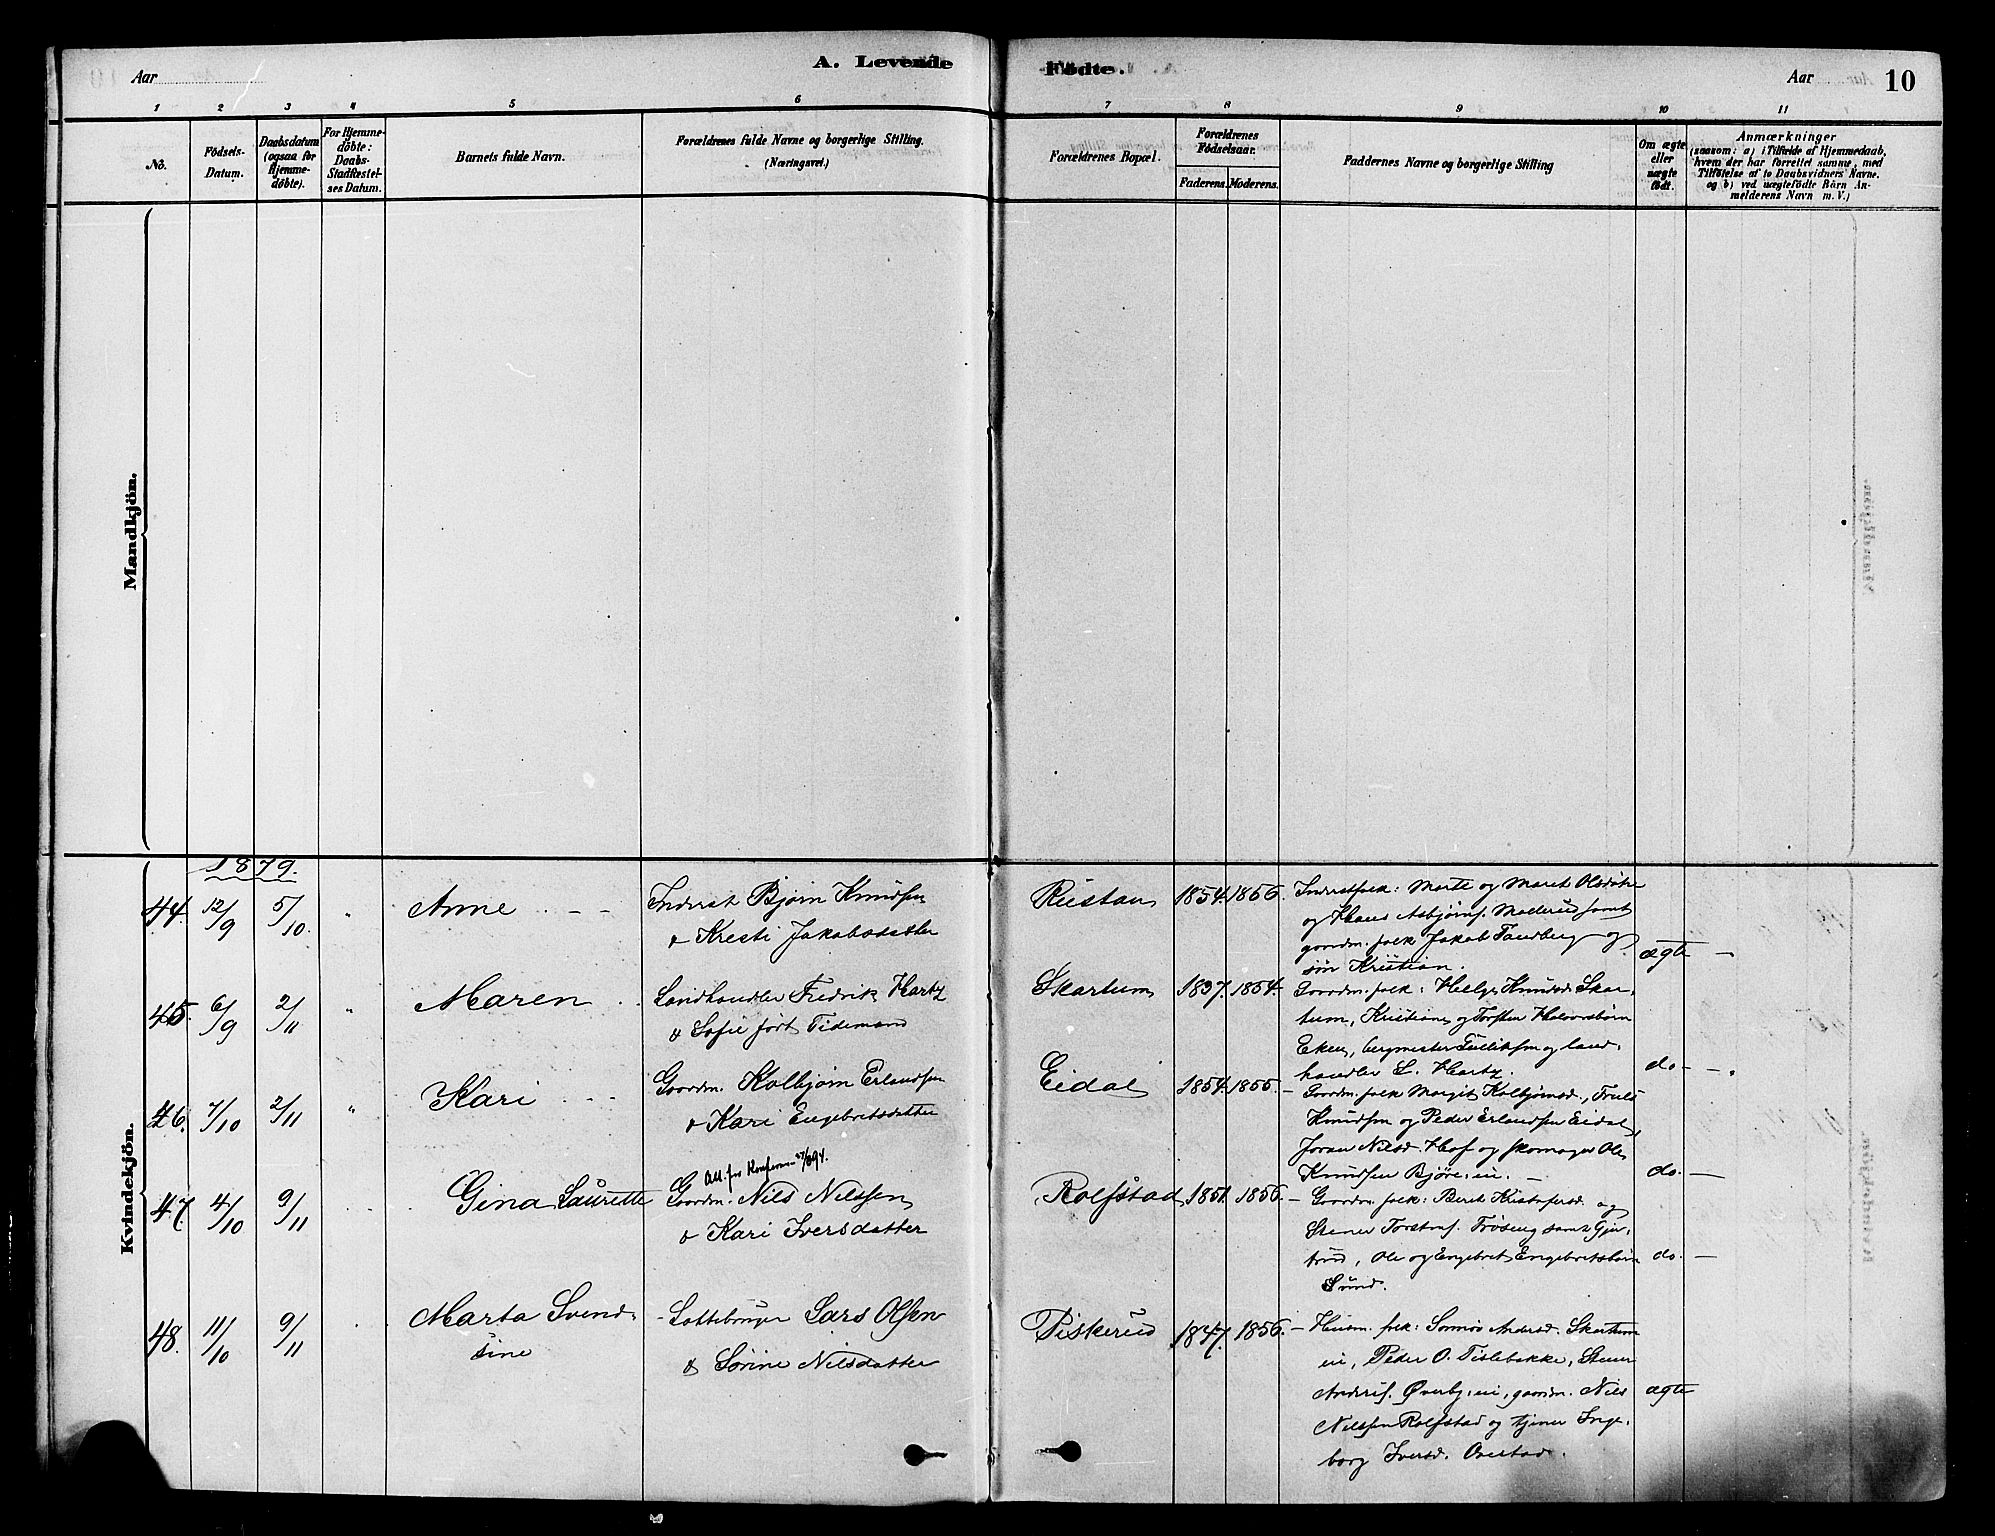 Aar
A. Levende
Fødte.
Aar
10
1 2 3 4 5 6 7 8 9 10 11
No.
Fødsels-
Datum.
Daabsdatum
(ogsaa for
Hjemme-
døbte).
For Hjemme-
døbte:
Daabs-
Stadfæstel-
ses Datum.
Barnets fulde Navn.
Forældrenes fulde Navne og borgerlige Stilling.
(Næringsvei.)
Forældrenes Bopæl.
Forældrenes
Fødselsaar.
Faderens.
Moderens.
Faddernes Navne og borgerlige Stilling
Om ægte
eller
uægte
født.
Anmærkninger
(saasom: a) i Tilfælde af Hjemmedaab,
hvem der har forrettet samme, med
Tilføielse af to Daabsvidners Navne.
og b) ved uægtefødte Børn An-
melderens Navn m. V.)
Mandkjön.
Kvindekjön.
1879.
44. 12/9 5/10. "
Anne
Inderst Bjørn Knudsen
& Kresti Jakobsdatter
Rustan
1854. 1856.
Inderstfolk: Marte og Maret Olsdøtre
og Hans Asbjørns. Moderud samt
gaardm. folk Jakob Tandberg og
søn Kristian.
ægte
45. 6/9 2/11 "
Maren
Landhandler Fredrik Hartz
& Sofie født Tidemand
Skartum
1837. 1854.
Gaardm. folk: Helge Knudsd. Skar-
tum, Kristiane og Torsten Halvorsbørn
Eken, bergmester Tellefsen og land-
handler L. Hartz.
do
46. 7/10 2/11 "
Kari
Gaardm. Kolbjørn Erlandsen
& Kari Engebretsdatter
Eidal
1854. 1855.
Gaardm. folk Margit Kolbjørnsd., Truls
Knudsen og Peder Erlandsen Eidal,
Joran Nilsd. Hof og skomager Ole
Knudsen Bjøre-ei.
do.
47. 4/10 9/11
Gina Laurette
Gaardm. Nils Nilssen
& Kari Iversdatter
Rolfstad
1851. 1856.
Gaardm. folk: Beret Kristofersd. og
Stener Torstens. Frøseng samt Gjer-
trud, Ole og Engebret Engebretsbørn
Sund.
do.
48. 11/10 9/11
Marta Svend-
sine
Lars Olsen
& Sørine Nilsdatter
Piskerud
1847. 1856.
Husm. folk: Andersd. Skartum
ei, Peder O. Tislebakke, Stener
Anders. Øverby-ei, gaardm. Nils
Nilssen Rolfstad og tjener Inge-
borg Iversd. Overstad.
ægte